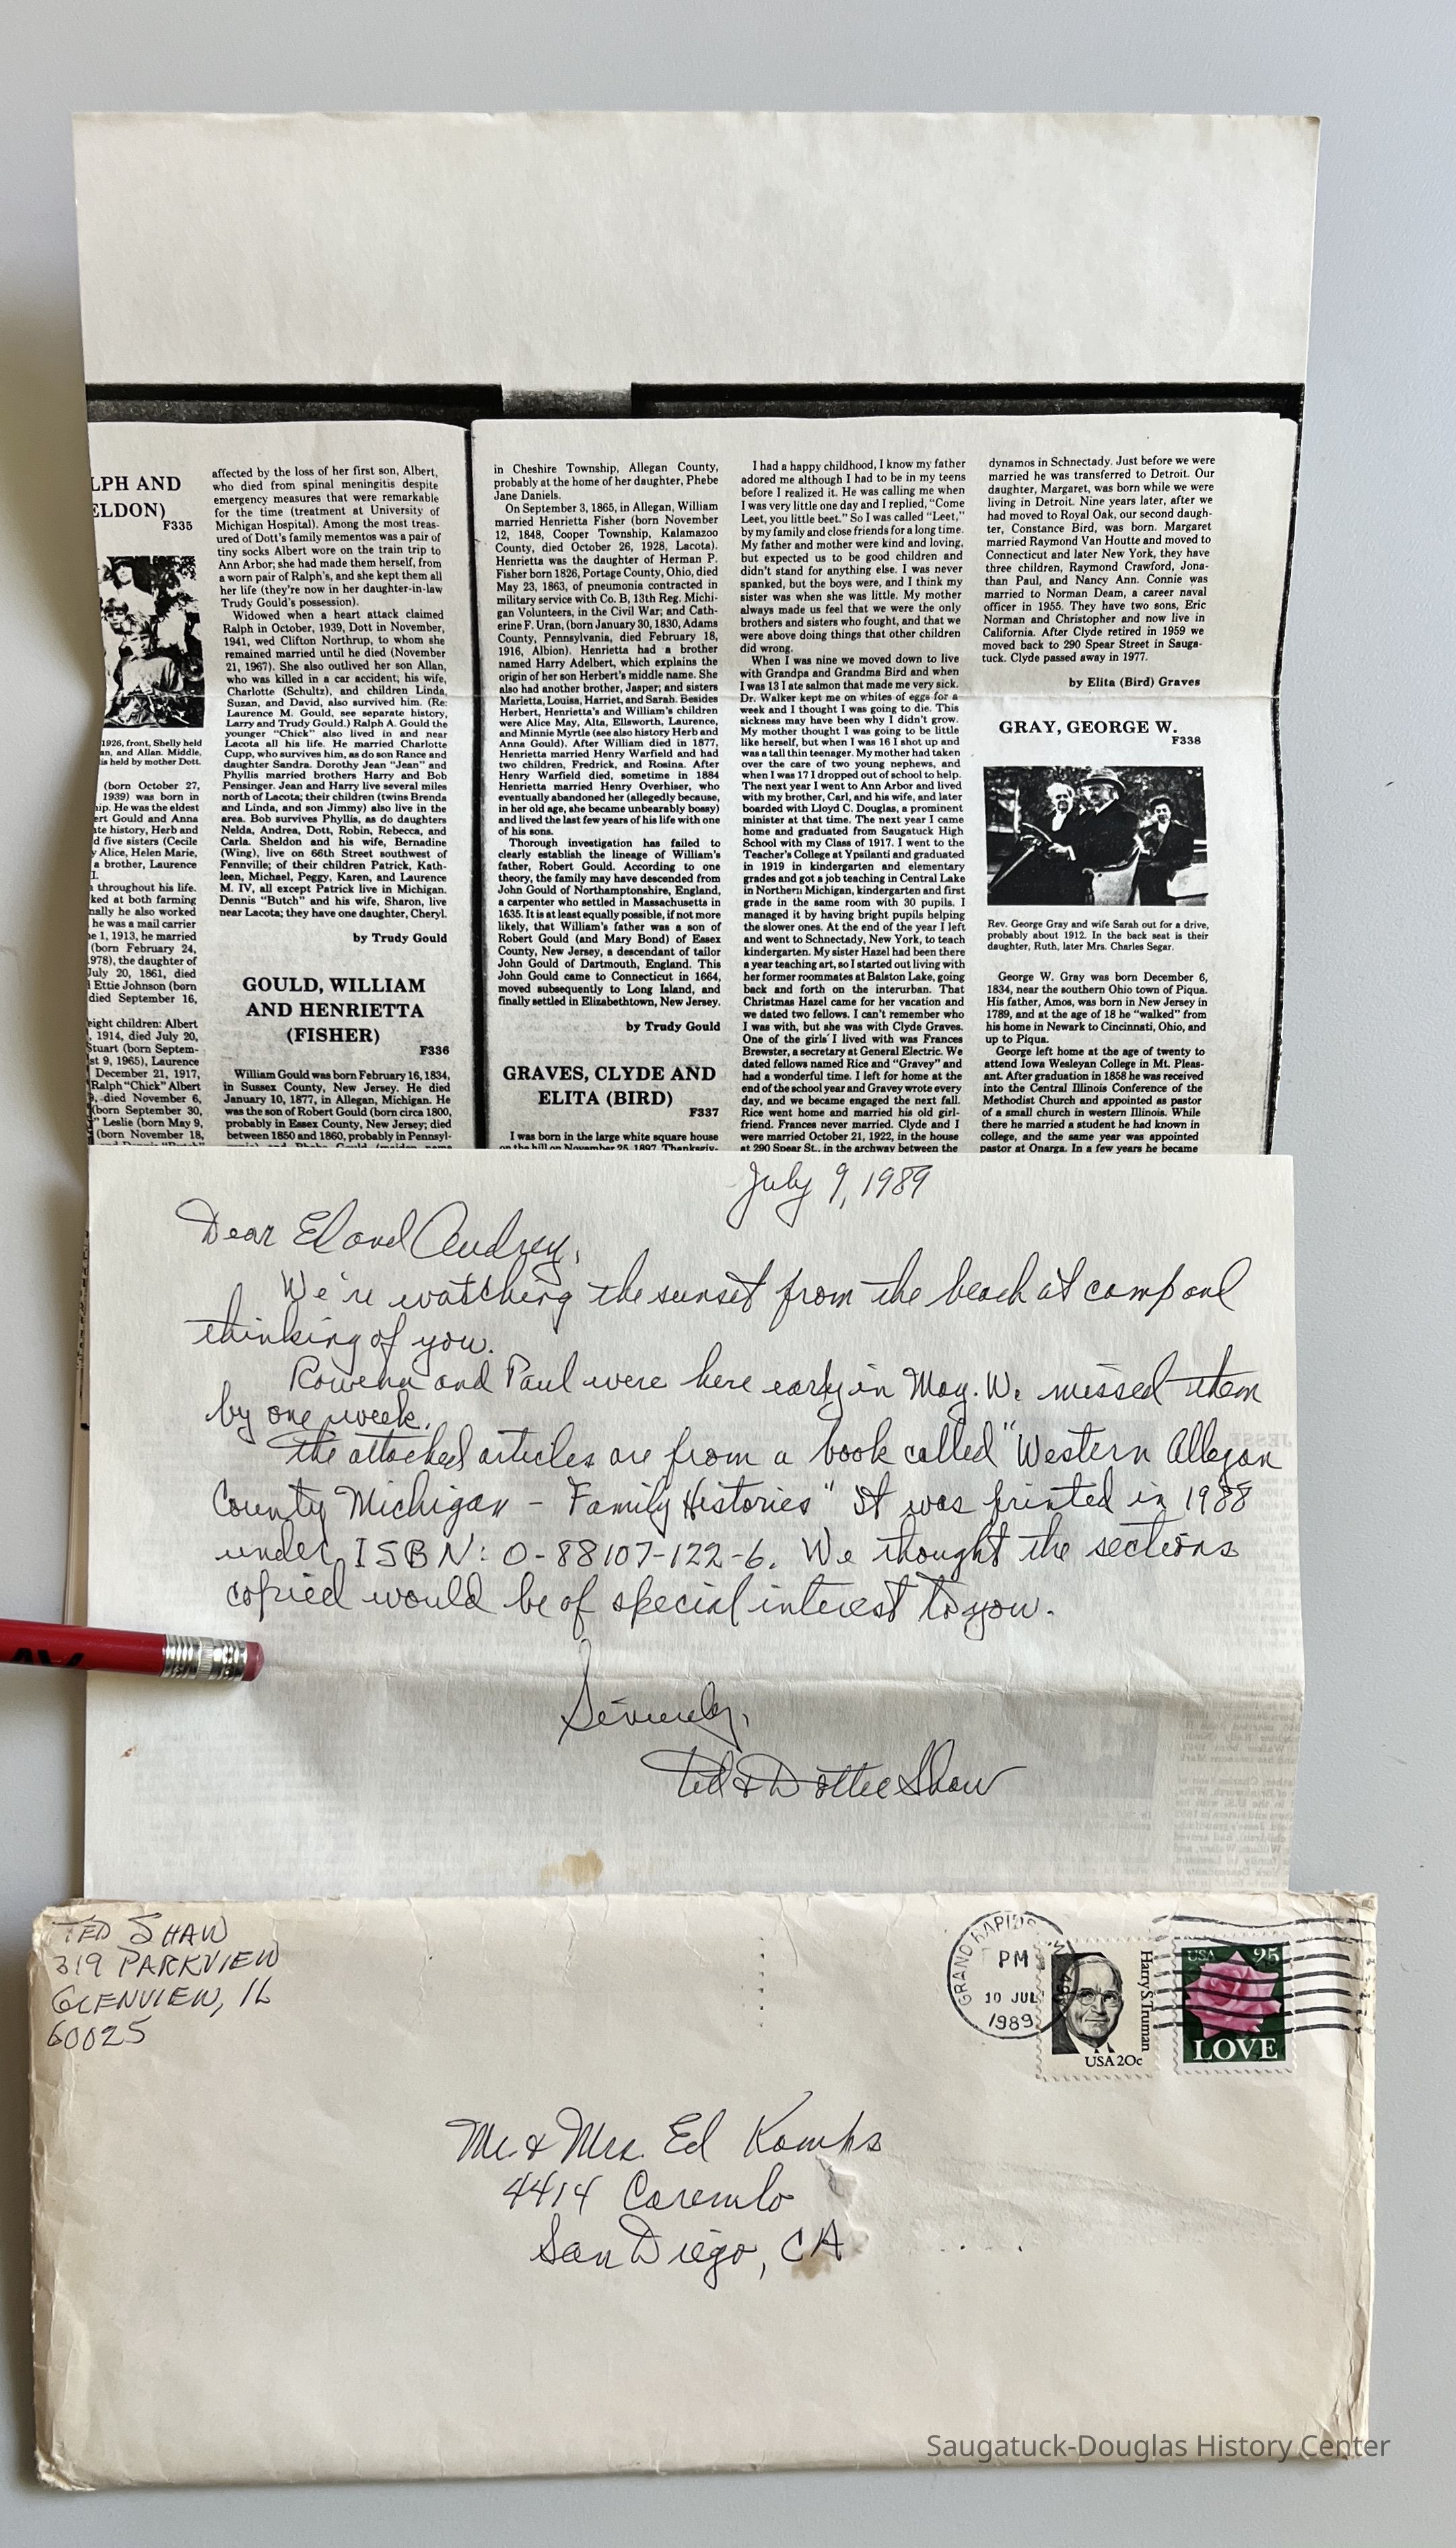 LPH AND
ELDON)
F335
1926, front, Shelly held
an, and Allan. Middle,
is held by mother Dott.
(born October 27,
1939) was born in
ip. He was the eldest
ert Gould and Anna
te history, Herb and
d five sisters (Cecile
y Alice, Helen Marie,
a brother, Laurence
throughout his life.
ked at both farming
nally he also worked
he was a mail carrier
ne 1, 1913, he married
(born February 24,
1978), the daughter of
July 20, 1861, died
Ettie Johnson (born
died September 16,
eight children: Albert
, 1914, died July 20,
Stuart (born Septem-
st 9, 1965), Laurence
December 21, 1917,
Ralph "Chick" Albert
9, died November 6,
(born September 30,
" Leslie (born May 9,
(born November 18,
affected by the loss of her first son, Albert,
who died from spinal meningitis despite
emergency measures that were remarkable
for the time (treatment at University of
Michigan Hospital). Among the most treas-
ured of Dott's family mementos was a pair of
tiny socks Albert wore on the train trip to
Ann Arbor; she had made them herself, from
a worn pair of Ralph's, and she kept them all
her life (they're now in her daughter-in-law
Trudy Gould's possession).
Widowed when a heart attack claimed
Ralph in October, 1939, Dott in November,
1941, wed Clifton Northrup, to whom she
remained married until he died (November
21, 1967). She also outlived her son Allan,
who was killed in a car accident; his wife,
Charlotte (Schultz), and children Linda,
Suzan, and David, also survived him. (Re:
Laurence M. Gould, see separate history,
Larry and Trudy Gould.) Ralph A. Gould the
younger "Chick" also lived in and near
Lacota all his life. He married Charlotte
Cupp, who survives him, as do son Rance and
daughter Sandra. Dorothy Jean "Jean" and
Phyllis married brothers Harry and Bob
Pensinger. Jean and Harry live several miles
north of Lacota; their children (twins Brenda
and Linda, and son Jimmy) also live in the
area. Bob survives Phyllis, as do daughters
Nelda, Andrea, Dott, Robin, Rebecca, and
Carla. Sheldon and his wife, Bernadine
(Wing), live on 66th Street southwest of
Fennville; of their children Patrick, Kath-
leen, Michael, Peggy, Karen, and Laurence
M. IV, all except Patrick live in Michigan.
Dennis "Butch" and his wife, Sharon, live
near Lacota; they have one daughter, Cheryl.
by Trudy Gould
GOULD, WILLIAM
AND HENRIETTA
(FISHER)
F336
William Gould was born February 16, 1834,
in Sussex County, New Jersey. He died
January 10, 1877, in Allegan, Michigan. He
was the son of Robert Gould (born circa 1800,
probably in Essex County, New Jersey; died
between 1850 and 1860, probably in Pennsyl-
in Cheshire Township, Allegan County,
probably at the home of her daughter, Phebe
Jane Daniels.
On September 3, 1865, in Allegan, William
married Henrietta Fisher (born November
12, 1848, Cooper Township, Kalamazoo
County, died October 26, 1928, Lacota).
Henrietta was the daughter of Herman P.
Fisher born 1826, Portage County, Ohio, died
May 23, 1863, of pneumonia contracted in
military service with Co. B, 13th Reg. Michi-
gan Volunteers, in the Civil War; and Cath-
erine F. Uran, (born January 30, 1830, Adams
County, Pennsylvania, died February 18,
1916, Albion). Henrietta had a brother
named Harry Adelbert, which explains the
origin of her son Herbert's middle name. She
also had another brother, Jasper; and sisters
Marietta, Louisa, Harriet, and Sarah. Besides
Herbert, Henrietta's and William's children
were Alice May, Alta, Ellsworth, Laurence,
and Minnie Myrtle (see also history Herb and
Anna Gould). After William died in 1877,
Henrietta married Henry Warfield and had
two children, Fredrick, and Rosina. After
Henry Warfield died, sometime in 1884
Henrietta married Henry Overhiser, who
eventually abandoned her (allegedly because,
in her old age, she became unbearably bossy)
and lived the last few years of his life with one
of his sons.
Thorough investigation has failed to
clearly establish the lineage of William's
father, Robert Gould. According to one
theory, the family may have descended from
John Gould of Northamptonshire, England,
a carpenter who settled in Massachusetts in
1635. It is at least equally possible, if not more
likely, that William's father was a son of
Robert Gould (and Mary Bond) of Essex
County, New Jersey, a descendant of tailor
John Gould of Dartmouth, England. This
John Gould came to Connecticut in 1664,
moved subsequently to Long Island, and
finally settled in Elizabethtown, New Jersey.
by Trudy Gould
GRAVES, CLYDE AND
ELITA (BIRD)
F337
I was born in the large white square house
on the hill on November 25, 1897. Thanksgiv-
I had a happy childhood, I know my father
adored me although I had to be in my teens
before I realized it. He was calling me when
I was very little one day and I replied, "Come
Leet, you little beet." So I was called "Leet,"
by my family and close friends for a long time.
My father and mother were kind and loving,
but expected us to be good children and
didn't stand for anything else. I was never
spanked, but the boys were, and I think my
sister was when she was little. My mother
always made us feel that we were the only
brothers and sisters who fought, and that we
were above doing things that other children
did wrong.
When I was nine we moved down to live
with Grandpa and Grandma Bird and when
I was 13 I ate salmon that made me very sick.
Dr. Walker kept me on whites of eggs for a
week and I thought I was going to die. This
sickness may have been why I didn't grow.
My mother thought I was going to be little
like herself, but when I was 16 I shot up and
was a tall thin teenager. My mother had taken
over the care of two young nephews, and
when I was 17 I dropped out of school to help.
The next year I went to Ann Arbor and lived
with my brother, Carl, and his wife, and later
boarded with Lloyd C. Douglas, a prominent
minister at that time. The next year I came
home and graduated from Saugatuck High
School with my Class of 1917. I went to the
Teacher's College at Ypsilanti and graduated
in 1919 in kindergarten and elementary
grades and got a job teaching in Central Lake
in Northern Michigan, kindergarten and first
grade in the same room with 30 pupils. I
managed it by having bright pupils helping
the slower ones. At the end of the year I left
and went to Schnectady, New York, to teach
kindergarten. My sister Hazel had been there
a year teaching art, so I started out living with
her former roommates at Balston Lake, going
back and forth on the interurban. That
Christmas Hazel came for her vacation and
we dated two fellows. I can't remember who
I was with, but she was with Clyde Graves.
One of the girls I lived with was Frances
Brewster, a secretary at General Electric. We
dated fellows named Rice and "Gravey" and
had a wonderful time. I left for home at the
end of the school year and Gravey wrote every
day, and we became engaged the next fall.
Rice went home and married his old girl-
friend. Frances never married. Clyde and I
were married October 21, 1922, in the house
at 290 Spear St., in the archway between the
dynamos in Schnectady. Just before we were
married he was transferred to Detroit. Our
daughter, Margaret, was born while we were
living in Detroit. Nine years later, after we
had moved to Royal Oak, our second daugh-
ter, Constance Bird, was born. Margaret
married Raymond Van Houtte and moved to
Connecticut and later New York, they have
three children, Raymond Crawford, Jona-
than Paul, and Nancy Ann. Connie was
married to Norman Deam, a career naval
officer in 1955. They have two sons, Eric
Norman and Christopher and now live in
California. After Clyde retired in 1959 we
moved back to 290 Spear Street in Sauga-
tuck. Clyde passed away in 1977.
by Elita (Bird) Graves
GRAY, GEORGE W.
F338
Rev. George Gray and wife Sarah out for a drive,
probably about 1912. In the back seat is their
daughter, Ruth, later Mrs. Charles Segar.
George W. Gray was born December 6,
1834, near the southern Ohio town of Piqua.
His father, Amos, was born in New Jersey in
1789, and at the age of 18 he "walked" from
his home in Newark to Cincinnati, Ohio, and
up to Piqua.
George left home at the age of twenty to
attend Iowa Wesleyan College in Mt. Pleas-
ant. After graduation in 1858 he was received
into the Central Illinois Conference of the
Methodist Church and appointed as pastor
of a small church in western Illinois. While
there he married a student he had known in
college, and the same year was appointed
pastor at Onarga. In a few years he became
July 9, 1989
Dear Ed and Audrey,
We're watching the sunset from the beach at camp and
thinking of you.
Rowena and Paul were here early in May. We missed them
by one week.
The attached articles are from a book called "Western Allegan
County Michigan - Family Histories" It was printed in 1988
under ISBN: 0-88107-122-6. We thought the sections
copied would be of special interest to you.
Sincerely,
Ted & Dottee Shaw
TED SHAW
319 PARKVIEW
GLENVIEW, IL
60025
GRAND RAPIDS
PM
10 JUL
1989
Harry S. Truman
USA 20c
USA 25
LOVE
Mr & Mrs. Ed Kamhs
4414 Caremlo
San Diego, CA
Saugatuck-Douglas History Center